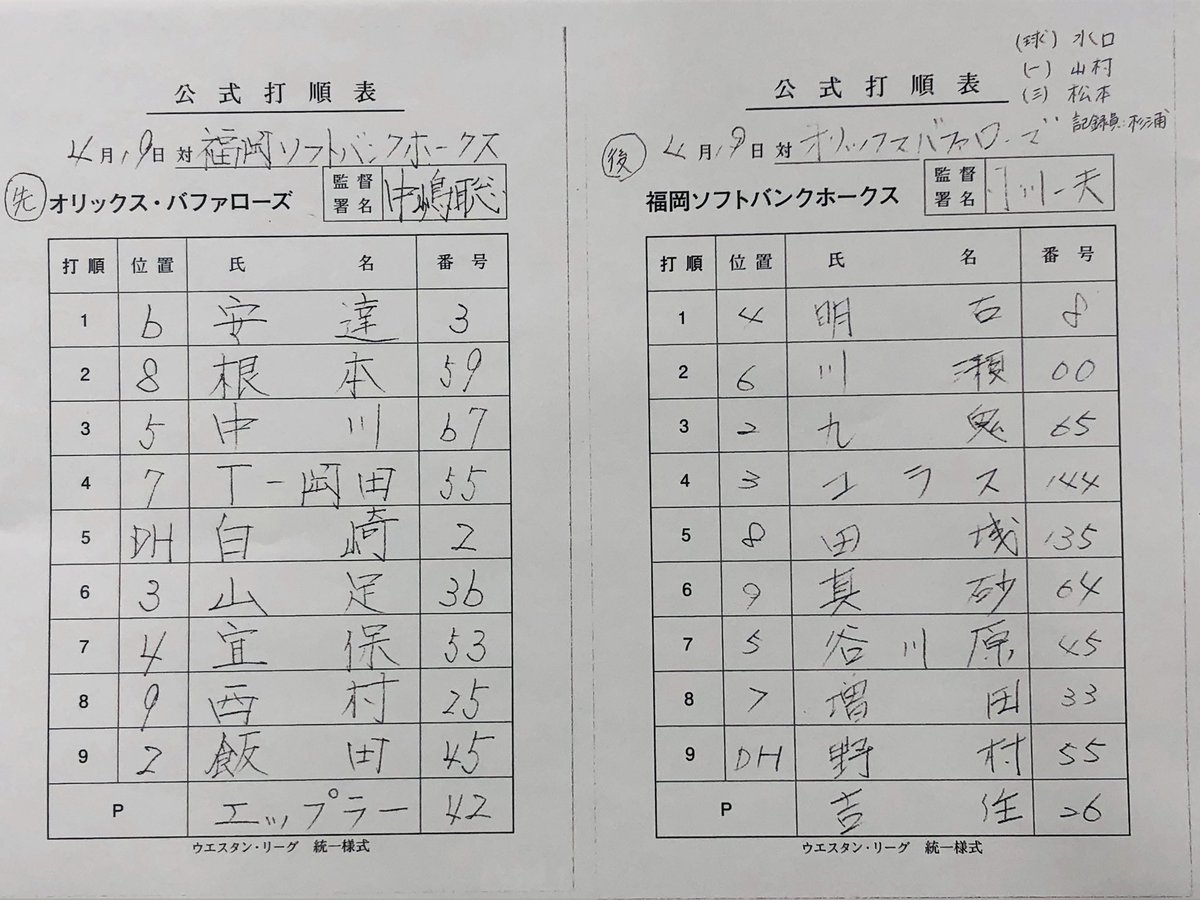 公式打順表
4月19日 対 福岡ソフトバンクホークス
先 オリックス・バファローズ 監督署名 中嶋聡
打順 位置 氏名 番号
1 6 安達 3
2 8 根本 59
3 5 中川 67
4 7 T-岡田 55
5 DH 白崎 2
6 3 山足 36
7 4 宜保 53
8 9 西村 25
9 2 飯田 45
P エップラー 42
ウエスタン・リーグ 統一様式
(球) 水口
(一) 山村
(三) 松本
記録員:杉浦
公式打順表
後 4月19日 対 オリックスバファローズ
福岡ソフトバンクホークス 監督署名 川一夫
打順 位置 氏名 番号
1 4 明石 8
2 6 川瀬 00
3 2 九鬼 65
4 3 コラス 144
5 8 田城 135
6 9 真砂 64
7 5 谷川原 45
8 7 増田 33
9 DH 野村 55
P 吉住 26
ウエスタン・リーグ 統一様式